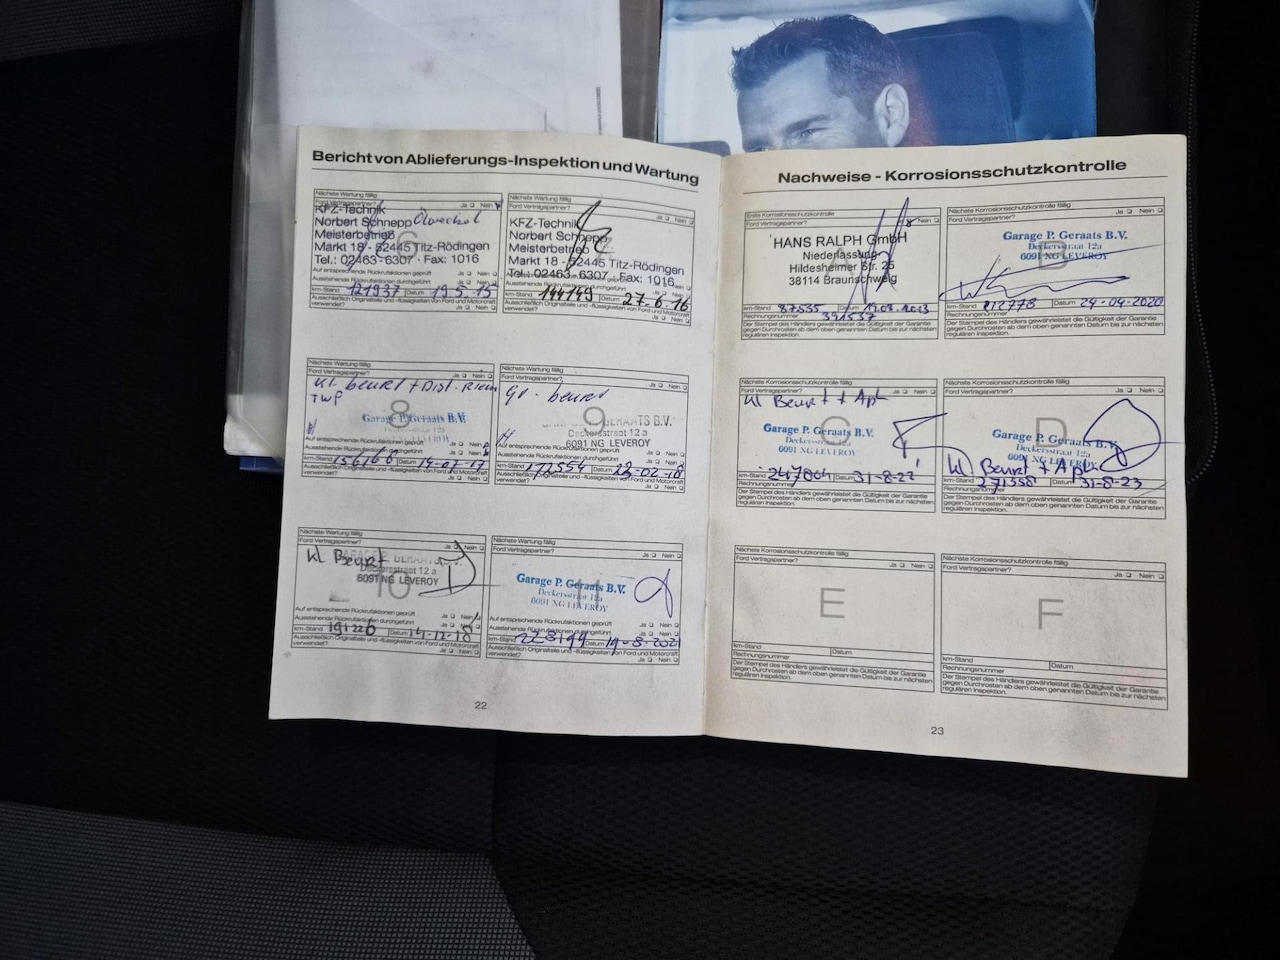 Bericht von Ablieferungs-Inspektion und Wartung
Nächste Wartung fällig
Ford Vertragspartner? Ja Nein
KFZ-Technik
Norbert Schnepp Ölwechsel
Meisterbetrieb
Markt 18 - 52445 Titz-Rödingen
Tel.: 02463-6307 · Fax: 1016
Auf entsprechende Rückrufaktionen geprüft Ja Nein
Ausstehende Rückrufaktionen durchgeführt
km-Stand 121937 Datum 19.5.15
Ausschließlich Originalteile und -flüssigkeiten von Ford und Motorcraft
verwendet? Ja Nein
Nächste Wartung fällig
Ford Vertragspartner? Ja Nein
KFZ-Technik
Norbert Schnepp
Meisterbetrieb
Markt 18 - 52445 Titz-Rödingen
Tel.: 02463-6307 · Fax: 1016
km-Stand 144149 Datum 27.6.16
Ausschließlich Originalteile und -flüssigkeiten von Ford und Motorcraft
verwendet? Ja Nein
Nächste Wartung fällig
Ford Vertragspartner? Ja Nein
Kl beurt + Dist. Riem
TWP
8
Garage P. Geraats B.V.
Auf entsprechende Rückrufaktionen geprüft Ja Nein
Ausstehende Rückrufaktionen durchgeführt Ja Nein
km-Stand 156168 Datum 14-02-17
Ausschließlich Originalteile und -flüssigkeiten von Ford und Motorcraft
verwendet? Ja Nein
Nächste Wartung fällig
Ford Vertragspartner? Ja Nein
Gr. beurt
9
GERAATS B.V.
Deckersstraat 12 a
6091 NG LEVEROY
Auf entsprechende Rückrufaktionen geprüft Ja Nein
Ausstehende Rückrufaktionen durchgeführt Ja Nein
km-Stand 172554 Datum 22-02-18
Ausschließlich Originalteile und -flüssigkeiten von Ford und Motorcraft
verwendet? Ja Nein
Nächste Wartung fällig
Ford Vertragspartner? Ja Nein
Kl Beurt
GERAATS
Deckersstraat 12 a
6091 NG LEVEROY
10
Auf entsprechende Rückrufaktionen geprüft Ja Nein
Ausstehende Rückrufaktionen durchgeführt Ja Nein
km-Stand 191226 Datum 14-12-18
Ausschließlich Originalteile und -flüssigkeiten von Ford und Motorcraft
verwendet? Ja Nein
Nächste Wartung fällig
Ford Vertragspartner? Ja Nein
11
Garage P. Geraats B.V.
Deckersstraat 12a
6091 NG LEVEROY
Auf entsprechende Rückrufaktionen geprüft Ja Nein
Ausstehende Rückrufaktionen durchgeführt Ja Nein
km-Stand 228199 Datum 19-8-2021
Ausschließlich Originalteile und -flüssigkeiten von Ford und Motorcraft
verwendet? Ja Nein
22
Nachweise - Korrosionsschutzkontrolle
Erste Korrosionsschutzkontrolle
Ford Vertragspartner? Ja Nein
HANS RALPH GmbH
Niederlassung
Hildesheimer Str. 25
38114 Braunschweig
km-Stand 87555 Datum 19.03.2013
Rechnungsnummer 391537
Der Stempel des Händlers gewährleistet die Gültigkeit der Garantie
gegen Durchrosten ab dem oben genannten Datum bis zur nächsten
regulären Inspektion.
Nächste Korrosionsschutzkontrolle fällig
Ford Vertragspartner? Ja Nein
B
Garage P. Geraats B.V.
Deckersstraat 12a
6091 NG LEVEROY
km-Stand 212778 Datum 24-04-2020
Rechnungsnummer
Der Stempel des Händlers gewährleistet die Gültigkeit der Garantie
gegen Durchrosten ab dem oben genannten Datum bis zur nächsten
regulären Inspektion.
Nächste Korrosionsschutzkontrolle fällig
Ford Vertragspartner? Ja Nein
Kl Beurt + Apk
C
Garage P. Geraats B.V.
Deckersstraat 12a
6091 NG LEVEROY
km-Stand 247004 Datum 31-8-22
Rechnungsnummer
Der Stempel des Händlers gewährleistet die Gültigkeit der Garantie
gegen Durchrosten ab dem oben genannten Datum bis zur nächsten
regulären Inspektion.
Nächste Korrosionsschutzkontrolle fällig
Ford Vertragspartner? Ja Nein
D
Garage P. Geraats B.V.
Deckersstraat 12a
6091 NG LEVEROY
Kl Beurt + Apk
km-Stand 271558 Datum 31-8-23
Rechnungsnummer
Der Stempel des Händlers gewährleistet die Gültigkeit der Garantie
gegen Durchrosten ab dem oben genannten Datum bis zur nächsten
regulären Inspektion.
Nächste Korrosionsschutzkontrolle fällig
Ford Vertragspartner? Ja Nein
E
km-Stand Datum
Rechnungsnummer
Der Stempel des Händlers gewährleistet die Gültigkeit der Garantie
gegen Durchrosten ab dem oben genannten Datum bis zur nächsten
regulären Inspektion.
Nächste Korrosionsschutzkontrolle fällig
Ford Vertragspartner? Ja Nein
F
km-Stand Datum
Rechnungsnummer
Der Stempel des Händlers gewährleistet die Gültigkeit der Garantie
gegen Durchrosten ab dem oben genannten Datum bis zur nächsten
regulären Inspektion.
23